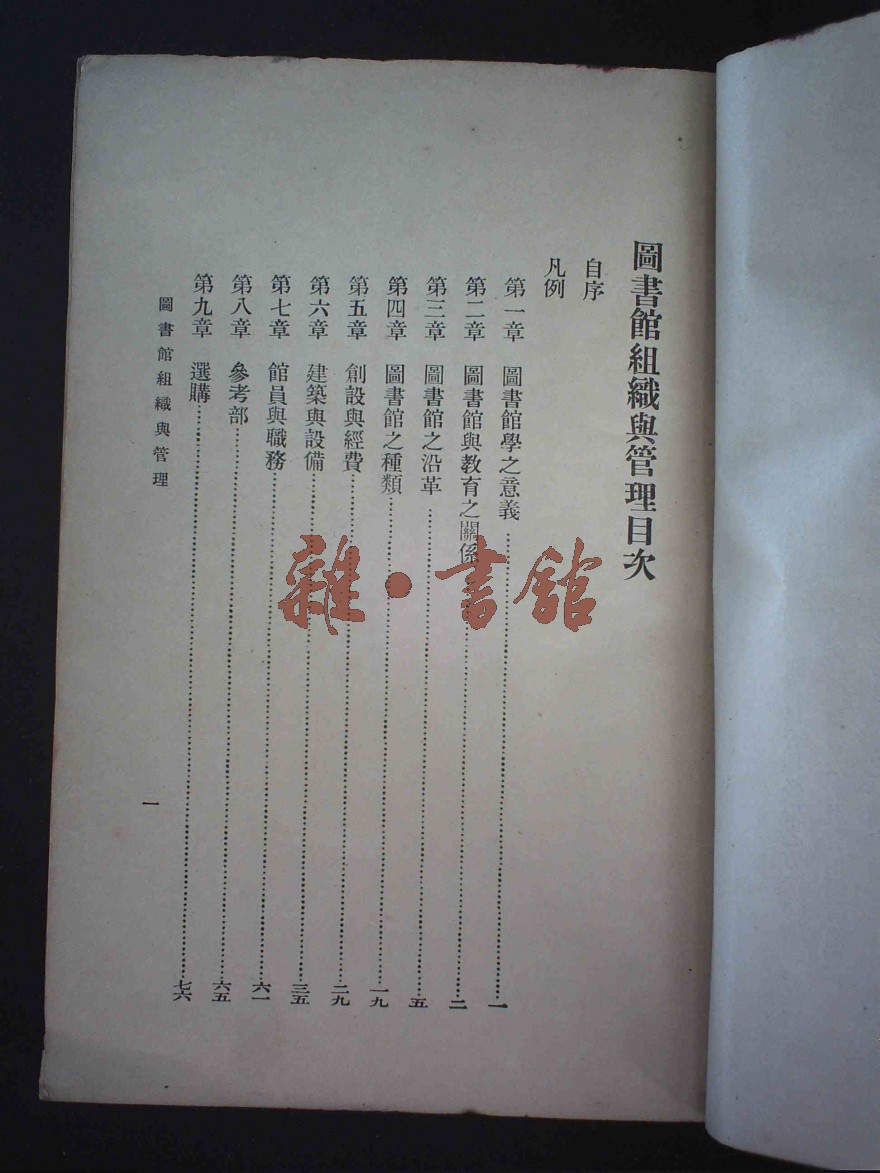 圖書館組織與管理目次
自序
凡例
第一章 圖書館學之意義……一
第二章 圖書館與教育之關係……二
第三章 圖書館之沿革……五
第四章 圖書館之種類……一九
第五章 創設與經費……二九
第六章 建築與設備……三五
第七章 館員與職務……六一
第八章 參考部……六五
第九章 選購……七六
圖書館組織與管理
一
雜·書館